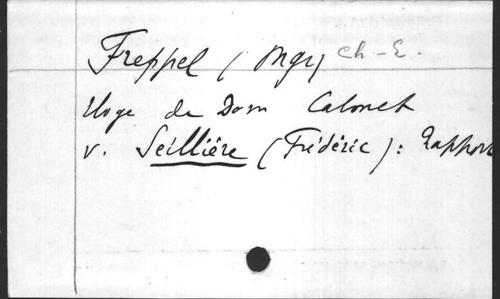 Freppel (Mgr) Ch-E.
Eloge de Dom Calmet
v. Seillière (Frédéric): Rapport